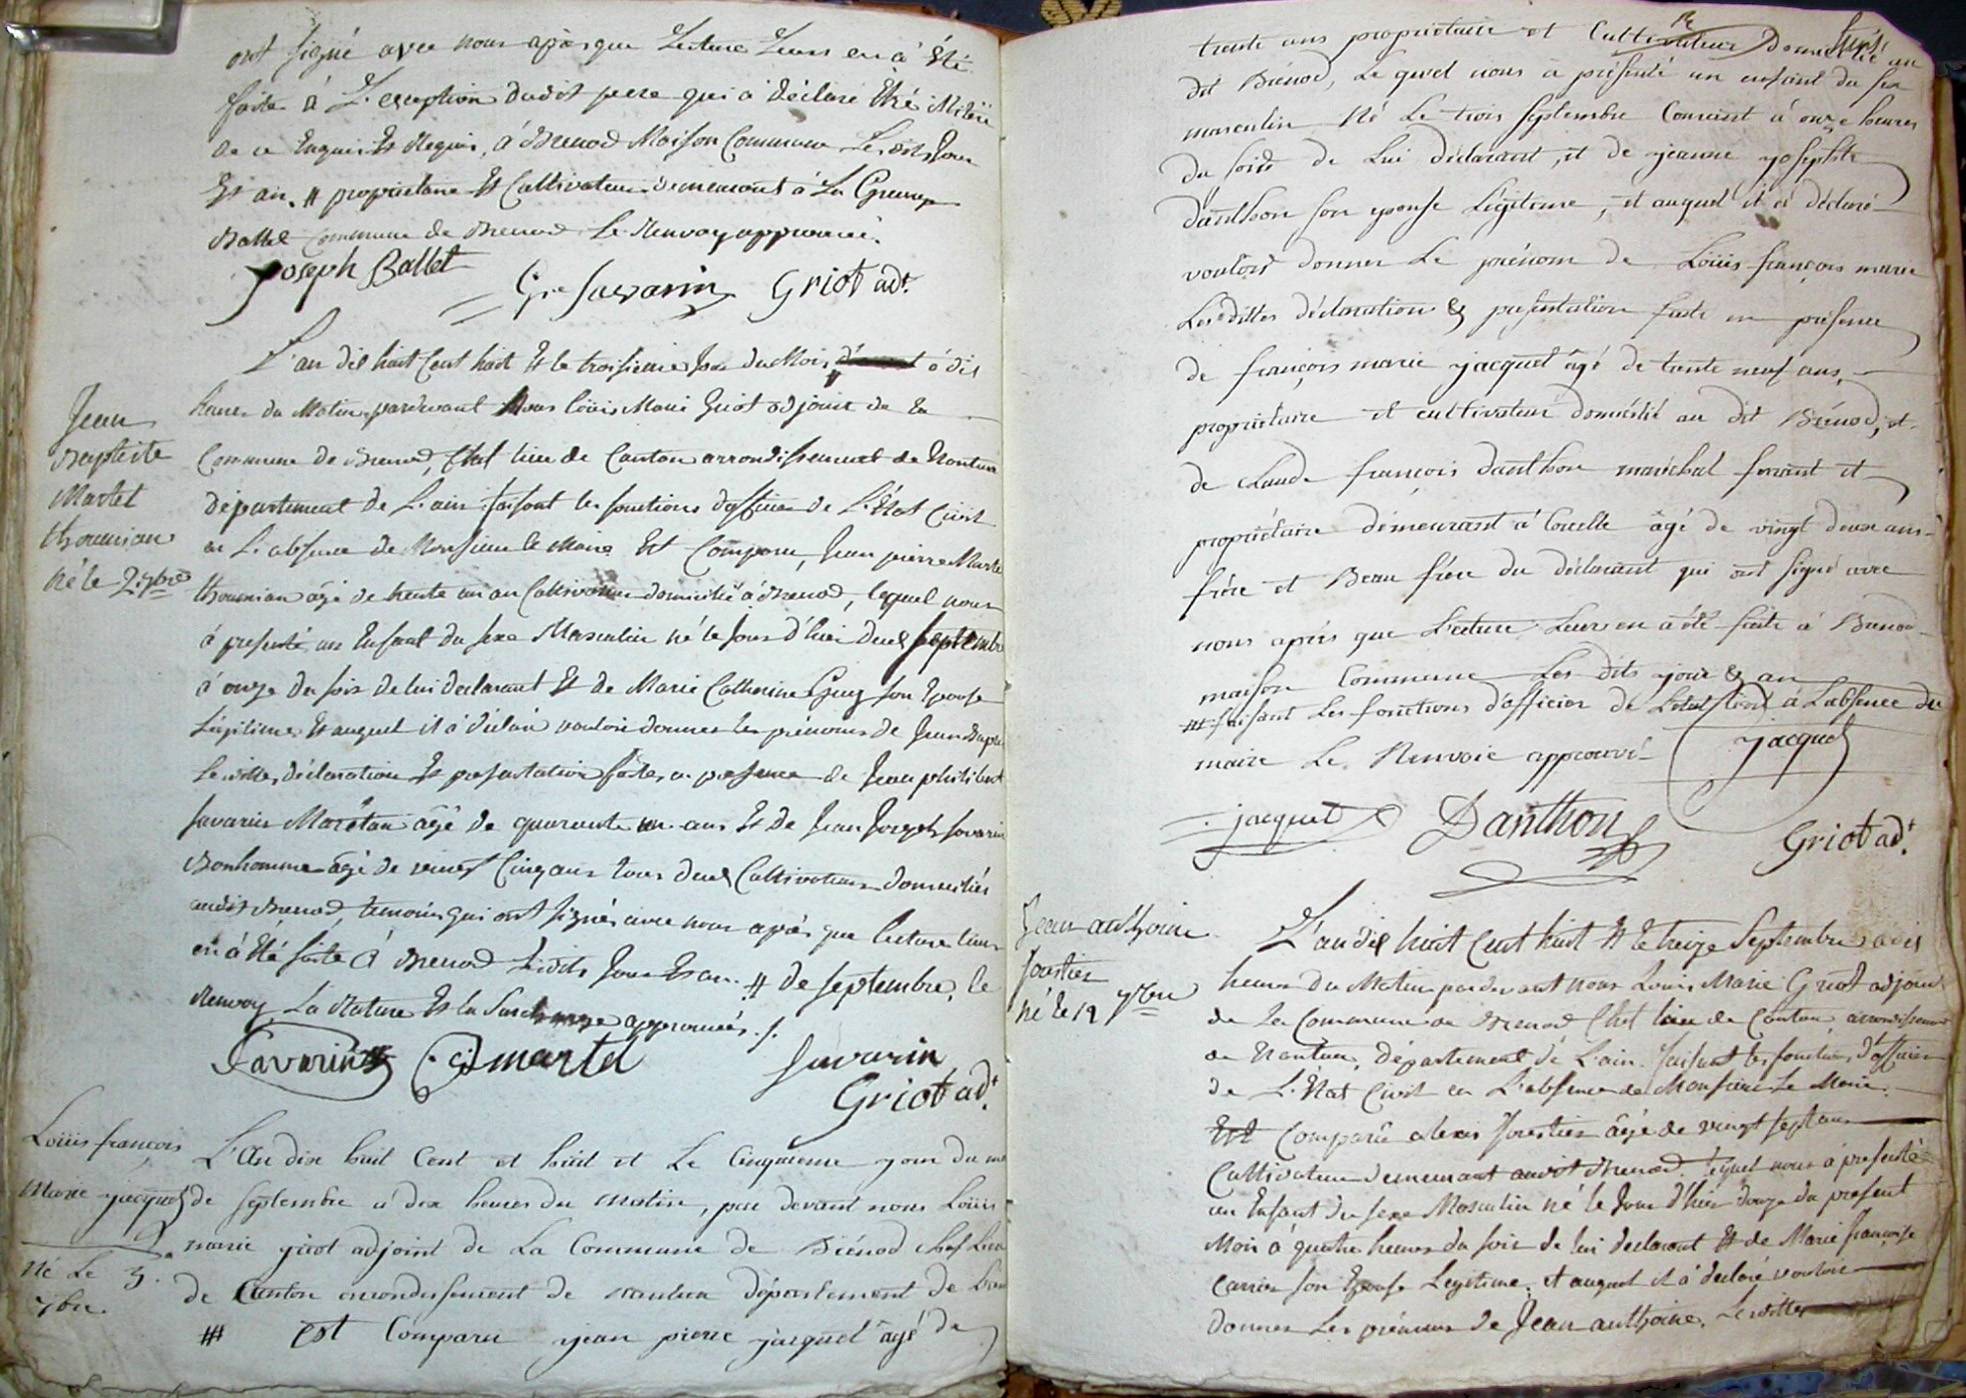 ont signé avec nous après que Lecture Leurs en a Été
faite à L'exception dudit pere qui a déclaré Etre illitéré
de ce Enquis Et Requis, à Brenod Maison Commune Lesdits Jour
Et an. # proprietaire Et Cultivateur demeurant à La
Ballet commune de Brenod Le Renvoy approuvé.
joseph Ballet
Savarin Griot adt.
L'an dix huit Cent huit Et le troisieme Jour du Mois # à dix
heures du Matin pardevant Nous Loüis Marie Griot adjoint de La
Commune de Brenod, Chef lieu de Canton arrondissement de Nantua
département de L'ain faisant les fonctions d'officier de L'Etat Civil
en L'absence de Monsieur le Maire Est Comparu, Jean pierre Martel
thournian âgé de trente un an Cultivateur domicilié à Brenod, lequel nous
à presenté un Enfant du sexe Masculin né le Jour d'hier deux septembre
à onze du soir de lui declarant Et de Marie Catherine Guy son Epouse
Légitime Et auquel il a déclaré vouloir donner les prénoms de Jean Bapte
Lesdittes déclaration Et presentation faites en presence de Jean philibert
Savarin Morétan âgé de quarante un ans Et de Jean Joseph Savarin
Bonhomme âgé de vingt Cinq ans tous deux Cultivateurs domiciliés
audit Brenod, temoins qui ont signés avec nous après que lecture leurs
en à Eté faite à Brenod Lesdits Jour Et an. # de septembre, le
Renvoy La Rature Et la Surcharge approuvés ./.
Savarin martel Savarin
Griot adt.
Jean
Baptiste
Martel
thournian
né le 2 7bre
Loüis françois
Marie jacquet
Né Le 3.
7bre.
L'An dix huit Cent et huit et Le Cinquieme jour du
de septembre à dix heures du matin, par devant nous Loüis
marie griot adjoint de La Commune de Brénod chef Lieu
de Canton arrondissement de nantua département de L'ain
## est Comparu jean pierre jacquet âgé de
trente ans proprietaire et Cultivateur domicilié au
dit Brénod, Le quel nous à présenté un enfant du sex
masculin Né Le trois septembre Courant à onze heures
du soir de Lui déclarant, et de jeanne josephte
danthon son epouse Légitime, et auquel il à déclaré
vouloir donner Le prénom de Loüis françois marie
Lesdittes déclaration & presentation faite en présence
de françois marie jacquet âgé de trente neuf ans,
propriétaire et cultivateur domicilié au dit Brénod, et
de claude françois danthon maréchal ferrant et
propriétaire demeurant à Corcelle âgé de vingt deux ans
frére et Beau frére du déclarant qui ont signé avec
nous aprés que Lecture Leur en à été faite à Brenod
maison Commune Les dits jour & an
## faisant Les fonctions d'officier de L'etat Civil à L'absence du
maire Le Renvoie approuvé jacquet
jacquet Danthon
Griot adt.
Jean anthoine
forestier
né le 12 7bre
L'an dix huit Cent huit Et le treize Septembre à dix
heures du Matin pardevant nous Louis Marie Griot adjoint
de La Commune de Brenod Chef lieu de Canton, arrondissement
de Nantua, Département de L'ain faisant les fonctions d'officier
de L'Etat Civil en L'absence de Monsieur Le Maire.
Est Comparû alexis forestier âgé de vingt sept ans
Cultivateur demeurant audit Brenod lequel nous à presenté
un Enfant du sexe Masculin né le Jour d'hier douze du present
Mois à quatre heures du soir de lui declarant Et de Marie françoise
Carrier son Epouse Legitime, Et auquel il à declaré vouloir
donner Les prénoms de Jean anthoine, Lesdittes